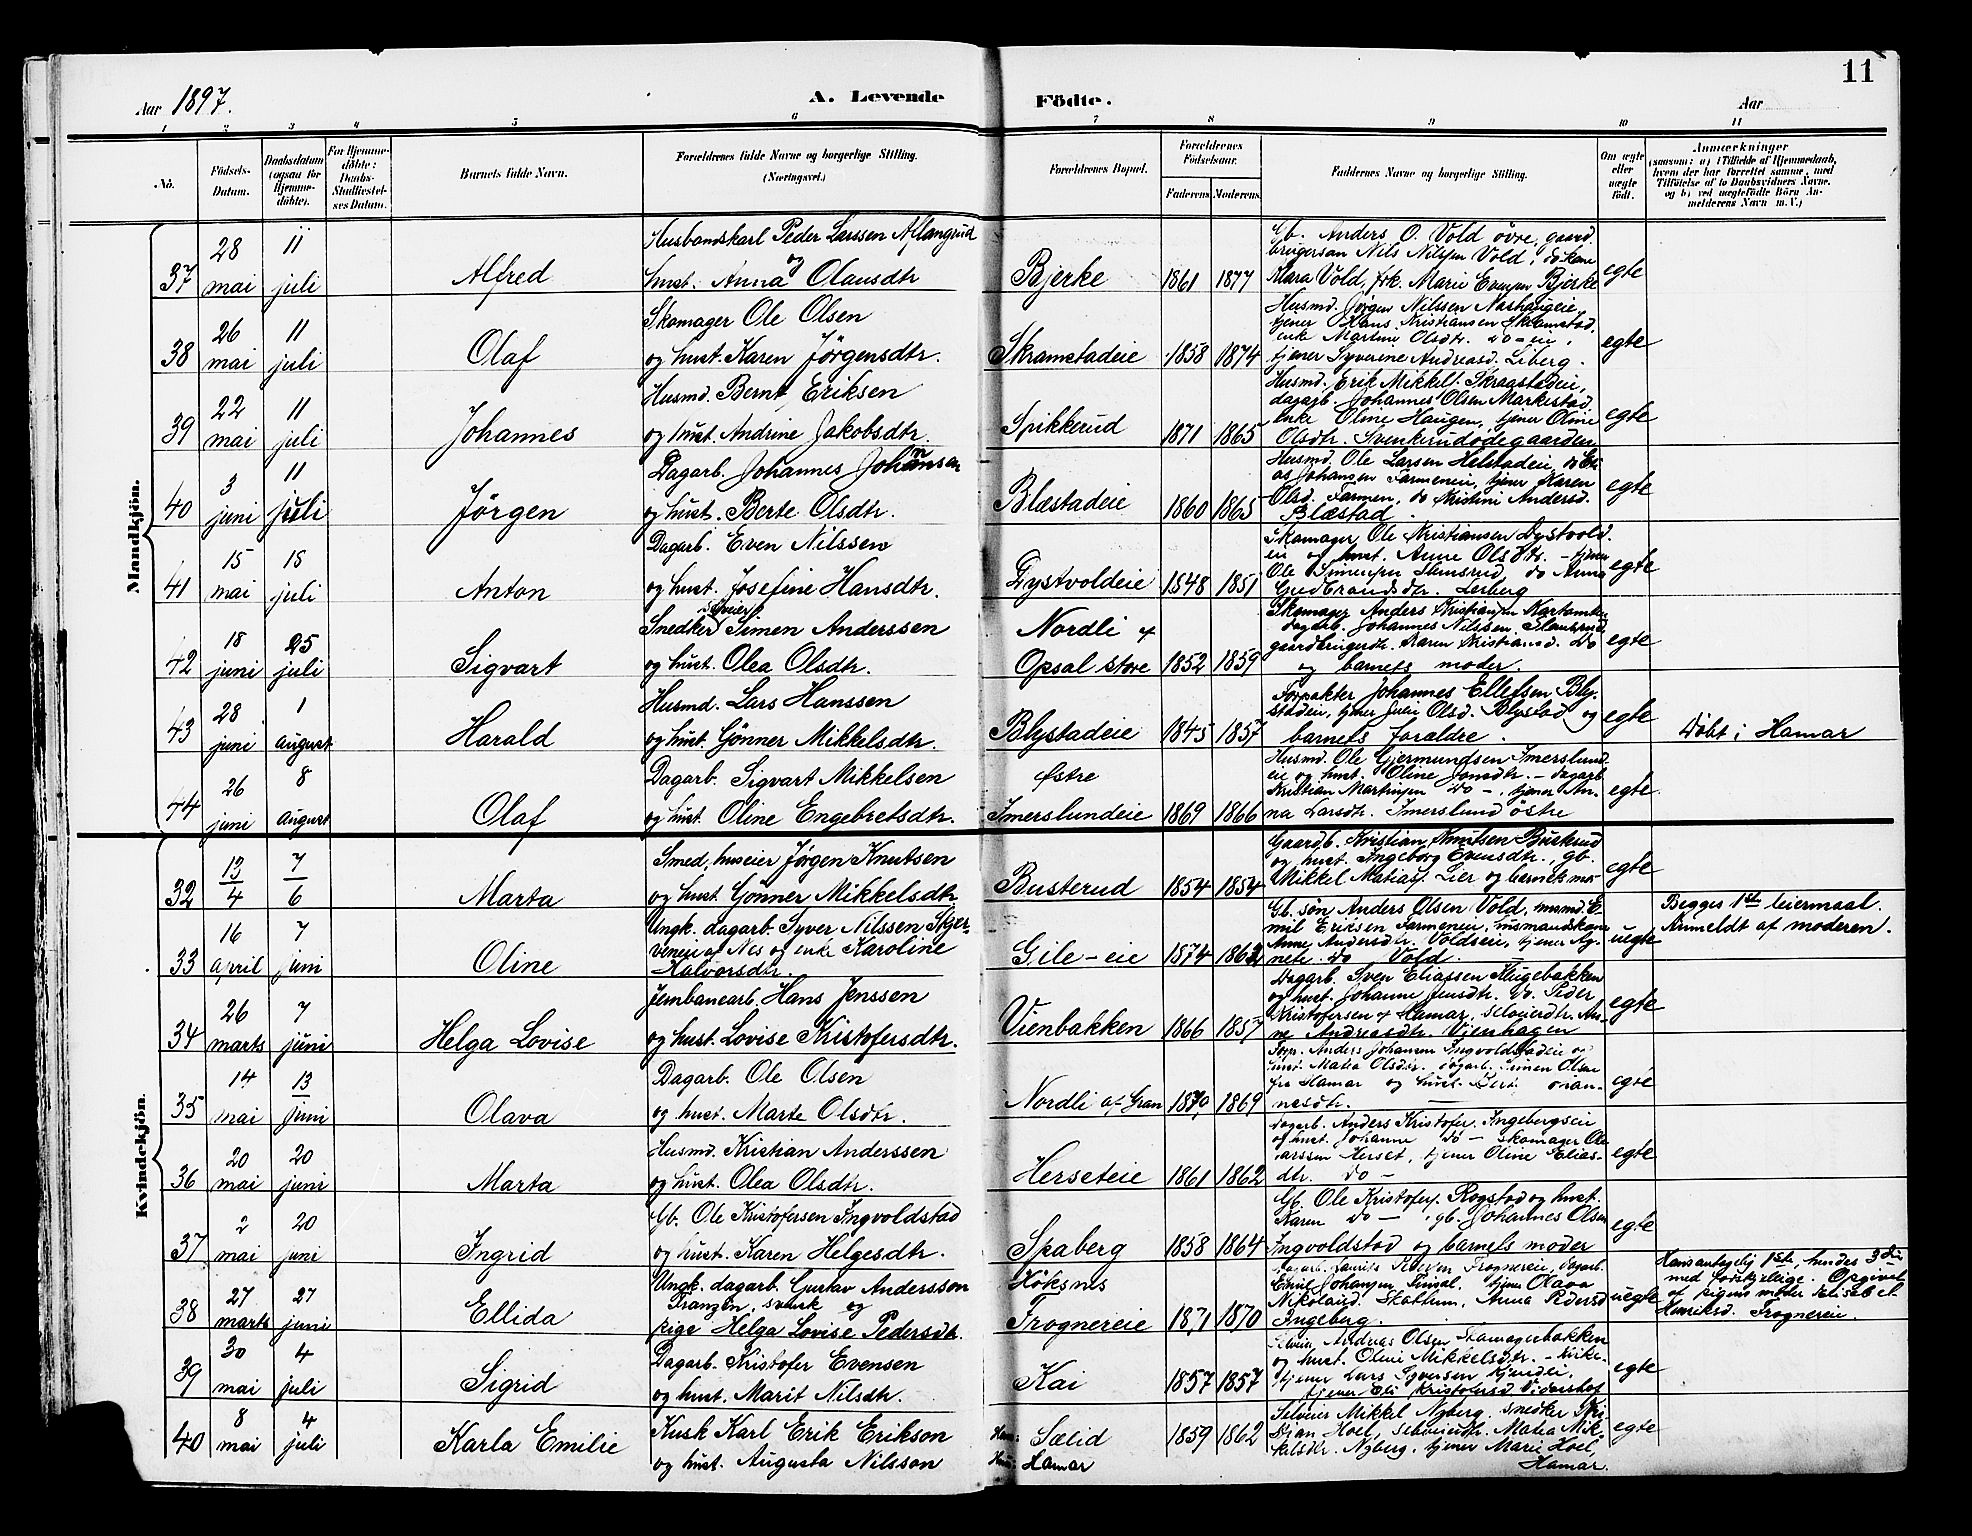 11
Aar 1897. A. Levende Födte. Aar
1 2 3 4 5 6 7 8 9 10 11
No. Födsels-Datum. Daabsdatum (ogsaa for Hjemmedöbte). For Hjemmedöbte: Daabs-Stadfæstelses Datum. Barnets fulde Navn. Forældrenes fulde Navne og borgerlige Stilling. (Næringsvei.) Forældrenes Bopæl. Forældrenes Födselsaar. Faderens Moderens Faddernes Navne og borgerlige Stilling. Om ægte eller uægte födt. Anmærkninger
(saasom: a) i Tilfælde af Hjemmedaab, hvem der har forrettet samme, med Tilföielse af to Daabsvidners Navne, og b) ved uægtefödte Börn Anmelderens Navn m. V.)
Mandkjön.
37 28 mai 11 juli Alfred Husbondskarl Peder Larssen
og hust. Anna Olausdtr Bjerke 1861 1877 Gb. Anders O. Vold övre, gaard-
brugersøn Nils Nilsen Vold,
Mara Vold, frk. Marie Evensen Bjerke egte
38 26 mai 11 juli Olaf Skomager Ole Olsen
og hust. Karen Jörgensdtr. Skramstadeie 1858 1874 Husmd. Jörgen Nilssen
tjener Hans Kristiansen Skramstad,
enke Martine Olsdtr. do-eie,
tjener Syverine Andreasd. Liberg. egte
39 22 mai 11 juli Johannes Husmd. Bernt Eriksen
og hust. Andrine Jakobsdtr. Spikkerud 1871 1865 Husmd. Erik Mikkels. Skragstadeie,
dagarb. Johannes Olsen Markestad
enke Oline Haugen, tjener Oline
Olsdtr. Svenkerudödegaarden egte
40 3 juni 11 juli Jörgen Dagarb. Johannes Johansen
og hust. Berte Olsdtr. Blæstadeie 1860 1865 Husmd. Ole Larsen Helstadeie, do Eli-
as Johansen Farmeneie, tjener Karen
Olsd. Farmen, do Kristini Andersd.
Blæstad. egte
41 15 mai 18 juli Anton Dagarb. Even Nilssen
og hust. Josefine Hansdtr. Dystvoldeie 1848 1851 Skomager Ole Kristiansen Dystvold-
eie og hust. Anne Olsdtr. - tjener
Ole Simensen do Anna
Gudbrandsdtr. egte
42 18 juni 25 juli Sigvart Snedker selveier Simen Anderssen
og hust. Olea Olsdtr. Nordli
Opsal store 1852 1859 Skomager Anders Kristiansen
dagarb. Johannes Nilssen
gaardbrugerdtr. Karen Kristiansd. do
og barnets moder. egte
43 28 juni 1 august Harald Husmd. Lars Hanssen
og hust. Gönner Mikkelsdtr. Blystadeie 1845 1857 Forpakter Johannes Ellefsen Bly-
stadeie, tjener Julie Olsd. Blystad og
barnets forældre. egte Döbt i Hamar
44 26 juni 8 august Olaf Dagarb. Sigvart Mikkelsen
og hust. Oline Engebretsdtr. östre
Imerslundeie 1869 1866 Husmd. Ole Gjermundsen Imerslund-
eie og hust. Oline Jonsdtr. - dagarb.
Kristian Martinsen do -, tjener An-
na Larsdtr. Imerslund östre egte.
Kvindekjön.
32 13/4 7/6 Marta Smed, huseier Jörgen Knutsen
og hust. Gönner Mikkelsdtr Busterud 1854 1854 Gaardb. Kristian Knutsen Busterud
og hust. Ingeborg Evensdtr., gb.
Mikkel Matias. Lier og barnets mor egte
33 16 april 7 juni Oline Ungk. dagarb. Syver Nilssen Skjer-
veneie af Nes og enke Karoline
Halvorsdtr. Gile-eie 1874 1862 Gb. sön Anders Olsen Vold, husmd. E-
mil Eriksen Farmeneie, husmandskone
Anne Andersdtr. Voldseie, tjener Ag-
nete do Vold. uegte Begges 1ste leiermaal.
Anmeldt af moderen.
34 26 marts 7 juni Helga Lovise Jernbanearb. Hans Jenssen
og hust. Lovise Kristofersdtr. Vienbakken 1866 1857 Dagarb. Sven Eliassen Klugebakken
og hust. Johanne Jensdtr. do. Peder
Kristofersen af Hamar, selveierdtr. An-
ne Andreasdtr. Vienhagen egte
35 14 mai 13 juni Olava Dagarb. Ole Olsen
og hust. Marte Olsdtr. Nordli af Gran 1870 1869 Forp. Anders Johansen Ingvoldstadeie og
hust. Matea Olsdtr. dagarb. Simen Olsen
fra Hamar og hust.
nesdtr. egte
36 20 mai 20 juni Marta Husmd. Kristian Anderssen
og hust. Olea Olsdtr. Herseteie 1861 1862 dagarb. Anders Kristofer. Ingebergseie
og hust. Johanne do - skomager Ole
Larssen Herset, tjener Oline Elias-
dtr. do - egte
37 2 mai 20 juni Ingrid Gb. Ole Kristofersen Ingvoldstad
og hust. Karen Helgesdtr. Spaberg 1858 1864 Gb. Ole Kristofers. Rogstad og hust.
Karen do -, gb. Johannes Olsen
Ingvoldstad og barnets moder egte
38 27 marts 27 juni Ellida Ungk. dagarb. Gustav Andersson
Franzén, svensk og
pige Helga Lovise Pedersdtr. Höksnes
Frognereie 1871 1870 dagarb. Laurits Pedersen Frognereie, dagarb.
Emil Johansen Timsal, tjener Olava
Nikolaisd. Skattum, Anna Pedersd
Ingeberg. uegte Hans antagelig 1ste, hendes 3die
med forskjellige. Opgivet
af pigens moder Elisabet
Henriksd. Frognereie.
39 30 mai 4 juli Sigrid Dagarb. Kristofer Evensen
og hust. Marit Nilsdtr. Kai 1857 1857 Selveier Andreas Olsen Skomagerbakken
og hust. Oline Mikkelsdtr. -
tjener Lars Syversen
tjener Eli Kristofersd. Vidarshof egte
40 8 mai 4 juli Karla Emilie Kusk Karl Erik Erikson
og hust. Augusta Nilsson Sælid
Hamar 1859 1862 Selveier Mikkel Nyberg, snedker Kri-
stian Hoel, selveierdtr. Matea Mik-
kelsdtr. Nyberg, tjener Marie Hoel,
Hamar. egte